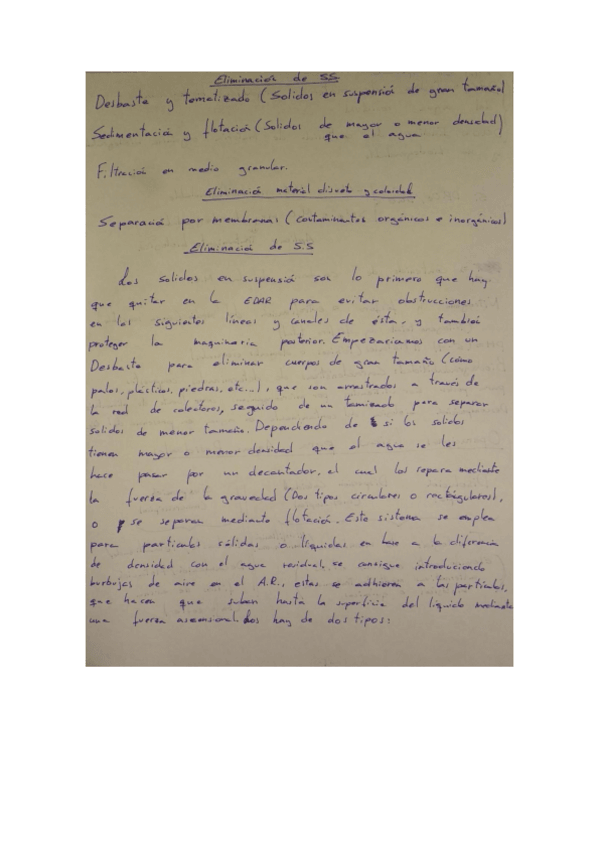 Eliminación de SS
Desbaste y tamatizado (Solidos en suspensió de gran tamaño)
Sedimentació y flotació (Solidos de mayor o menor densedad)
que el agua.
Filtració en medio granular.
Eliminació material disuelto y coloidal
Separació por membranas (contaminantes orgánicos e inorgánicos)
Eliminació de S.S
Los solidos en suspensió son lo primero que hay
que quitar en la EDAR para evitar obstrucciones
en las siguientes líneas y canales de ésta, y también
proteger la maquinaria posterior. Empezariamos con un
Desbaste para eliminar cuerpos de gran tamaño (como
palos, plásticos, piedras, etc...), que son arrastrados a través de
la red de colectores, seguido de un tamizado para separar
solidos de menor tamaño. Dependiendo de si los solidos
tienen mayor o menor densidad que el agua se les
hace pasar por un decantador, el cual los separa mediante
la fuerza de la gravedad (Dos tipos circulares o rectángulares),
o se separan mediante flotació. Este sistema se emplea
para particulas sólidas o líquidas en base a la diferencia
de densidad con el agua residual, se consigue introduciendo
burbujas de aire en el A.R., estas se adhieren a las particulas,
que hacen que suban hasta la superficie del líquido mediante
una fuerza ascensional. Los hay de dos tipos: